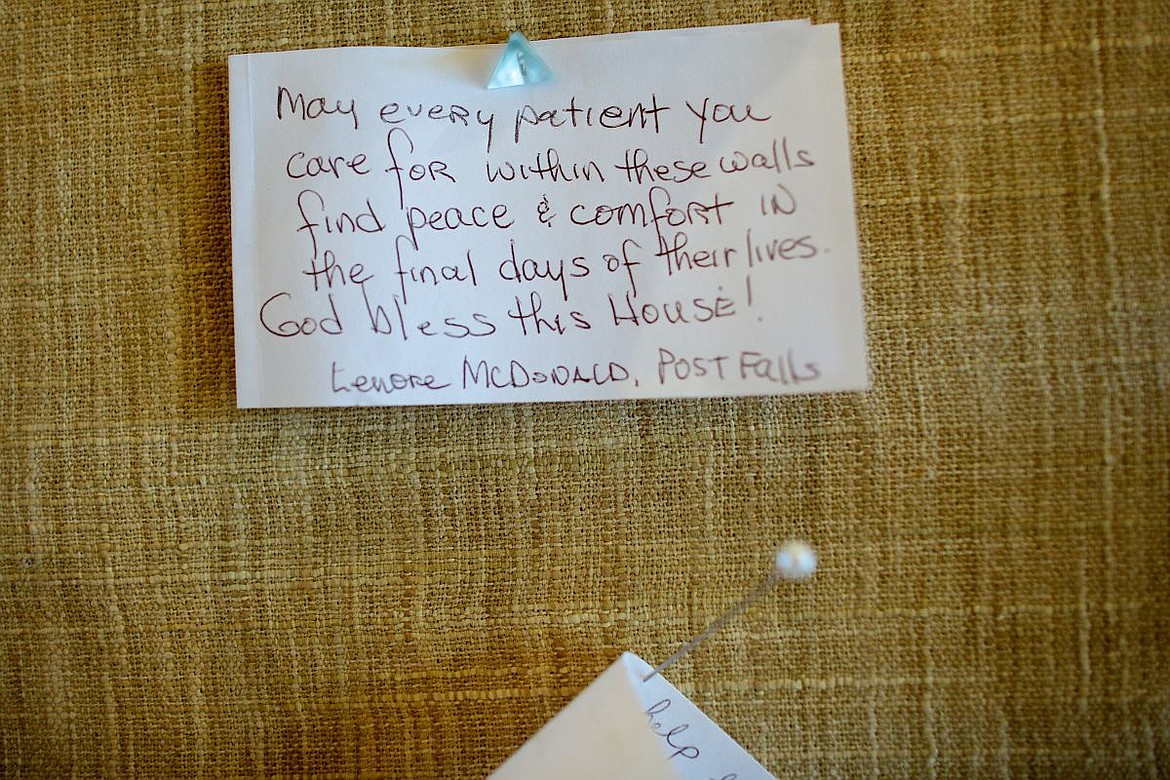 May every patient you
care for within these walls
find peace & comfort in
the final days of their lives.
God bless this House!
Lenore McDonald, Post Falls
help